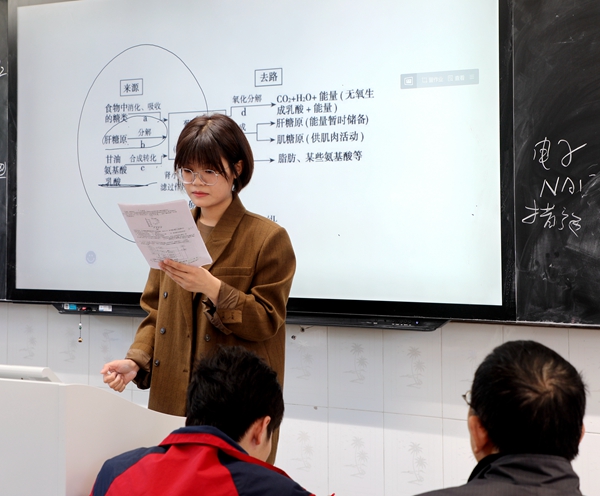 来源
去路
食物中消化、吸收
的糖类 a
氧化分解
d
CO₂+H₂O+能量(无氧生
成乳酸+能量)
肝糖原 分解
b
成
肝糖原(能量暂时储备)
肌糖原(供肌肉活动)
甘油
氨基酸
乳酸
合成转化
c
脂肪、某些氨基酸等
滤过
电子
措施